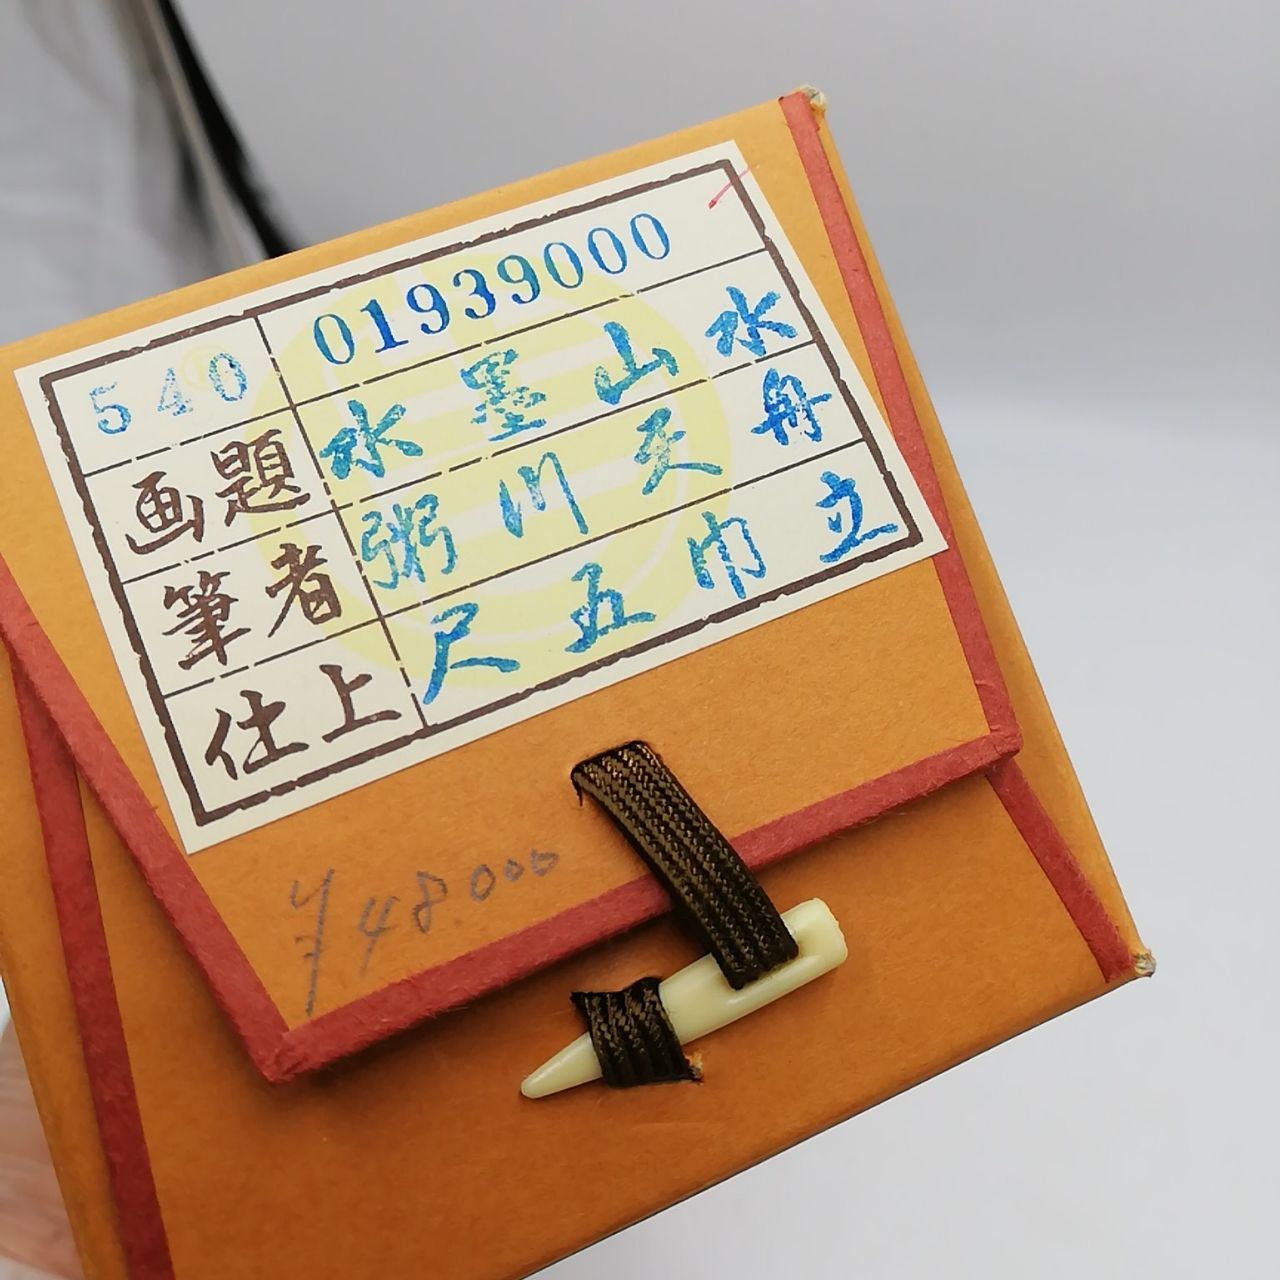 540 01939000
画題 水墨山水
筆者 粥川天舟
仕上 尺五巾立
¥48.000